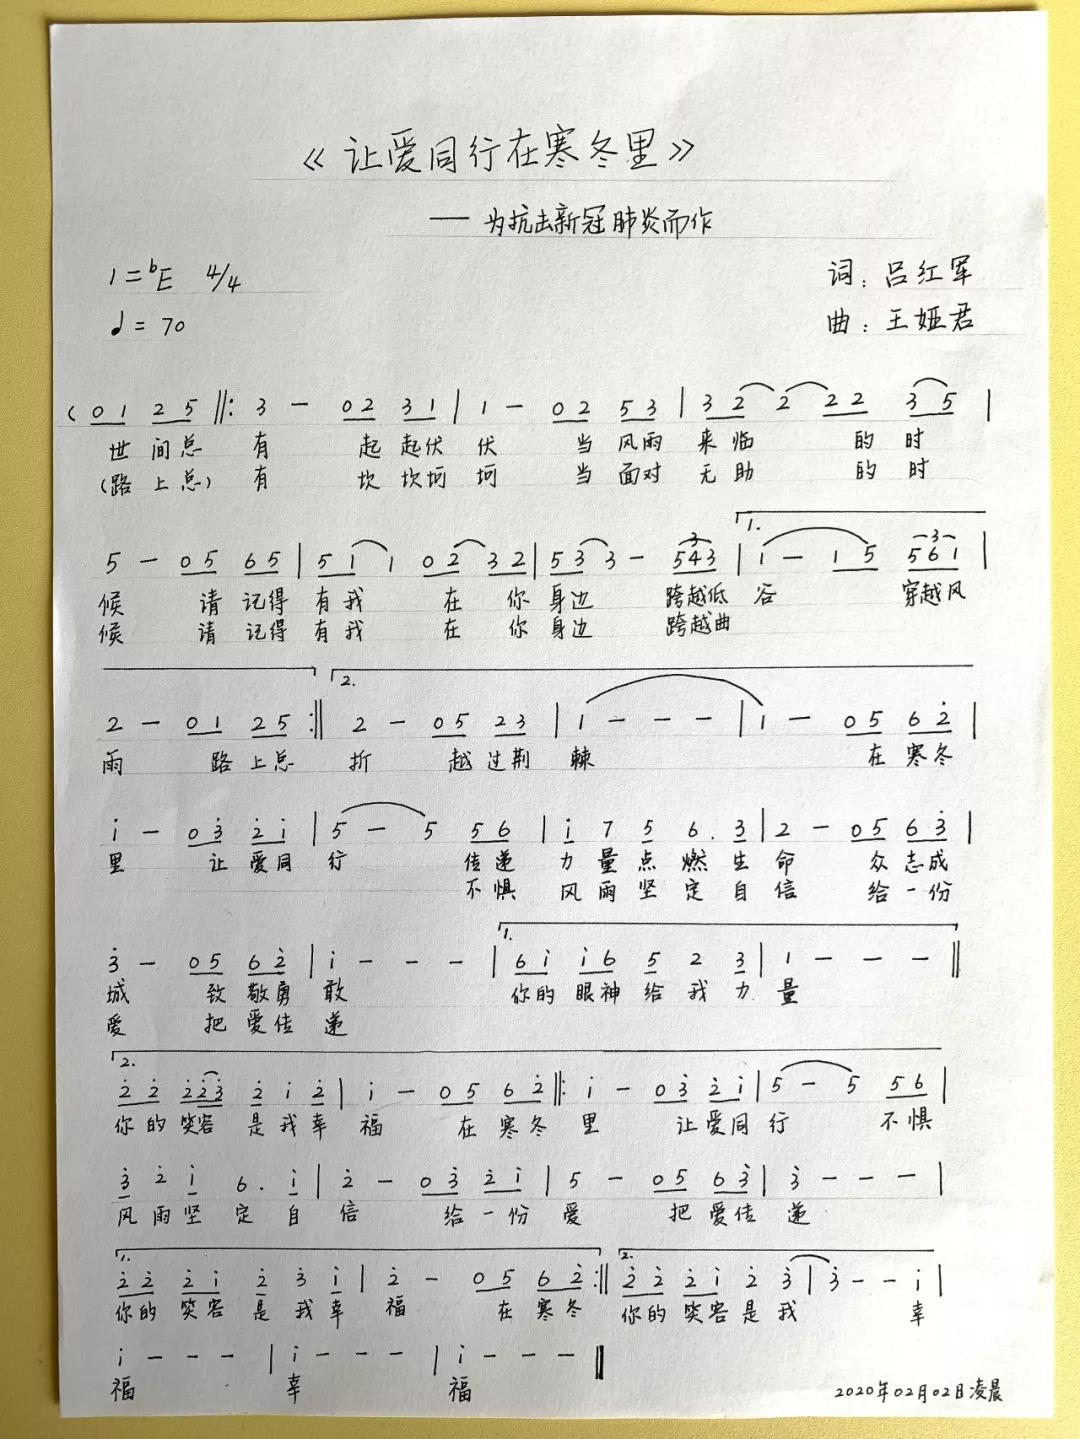 《让爱同行在寒冬里》
——为抗击新冠肺炎而作
1=ᵇE 4/4 词：吕红军
♩=70 曲：王娅君
(01 25 ‖: 3 - 02 31 | 1 - 02 53 | 32 2 22 35 |
世间总 有 起起伏 伏 当风雨 来临 的时
(路上总) 有 坎坎坷 坷 当面对 无助 的时
1.
5 - 05 65 | 51 1 02 32 | 53 3 - 543 | 1 - 15 561 |
候 请记得 有我 在你 身边 跨越低 谷 穿越风
候 请记得 有我 在你 身边 跨越曲
2.
2 - 01 25 :‖ 2 - 05 23 | 1 - - - | 1 - 05 62̇ |
雨 路上总 折 越过荆 棘 在寒冬
1̇ - 03̇ 2̇1̇ | 5 - 5 56 | 1̇ 7 5 6. 3 | 2 - 05 63̇ |
里 让爱同 行 传递 力量点燃生 命 众志成
不惧 风雨坚定自 信 给一份
1.
3̇ - 05 62̇ | 1̇ - - - | 61̇ 1̇6 5 2 3 | 1 - - - ‖
城 致敬勇 敢 你的眼神给我力 量
爱 把爱传 递
2.
2̇2̇ 2̇2̇3̇ 2̇ 1̇ 2̇ | 1̇ - 05 62̇ ‖: 1̇ - 03̇ 2̇1̇ | 5 - 5 56 |
你的笑容是我幸 福 在寒冬 里 让爱同 行 不惧
3̇ 2̇ 1̇ 6. 1̇ | 2̇ - 03̇ 2̇1̇ | 5 - 05 63̇ | 3̇ - - - |
风雨坚定自 信 给一份 爱 把爱传 递
1. 2.
2̇2̇ 2̇1̇ 2̇ 3̇ 1̇ | 2̇ - 05 62̇ :‖ 2̇2̇ 2̇1̇ 2̇ 3̇ | 3̇ - - 1̇ |
你的笑容是我幸 福 在寒冬 你的笑容是我 幸
1̇ - - - | 1̇ - - - | 1̇ - - - ‖
福 幸 福
2020年02月02日凌晨